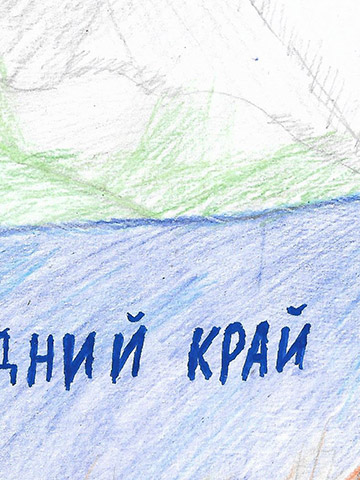 дний край